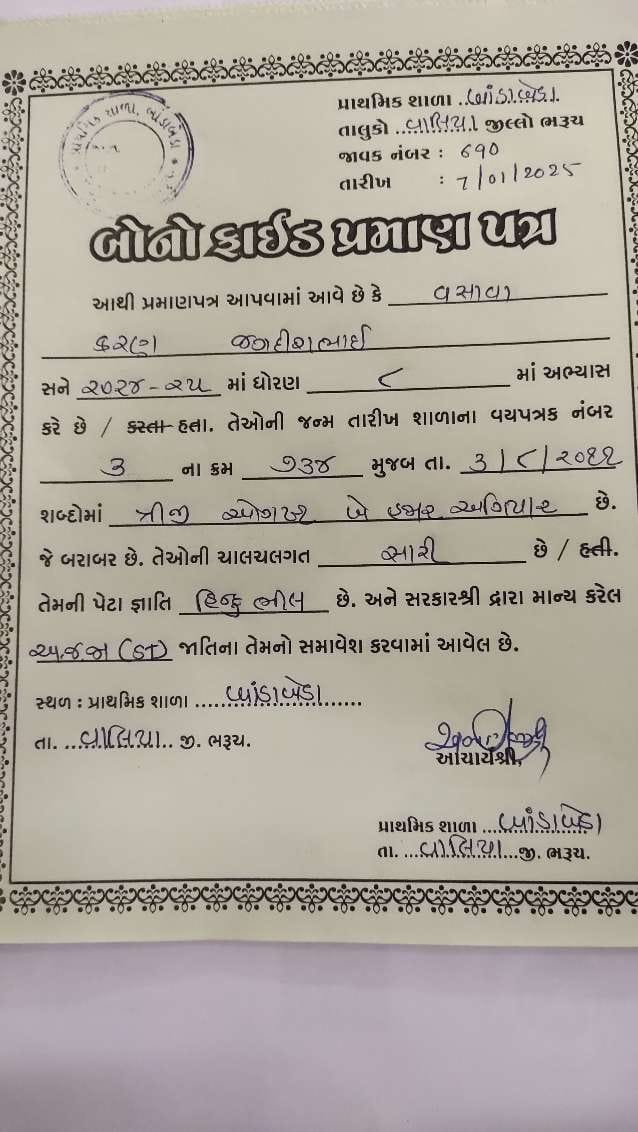 પ્રાથમિક શાળા, બાંડાબેડા
પ્રાથમિક શાળા ..બાંડાબેડા.
તાલુકો ..વાલિયા જીલ્લો ભરૂચ
જાવક નંબર : 690
તારીખ : 7/01/2025
બોનોફાઈડ પ્રમાણ પત્ર
આથી પ્રમાણપત્ર આપવામાં આવે છે કે વસાવા
કરણ જગદીશભાઈ
સને ૨૦૨૪-૨૫ માં ધોરણ ૮ માં અભ્યાસ
કરે છે / કરતા હતા. તેઓની જન્મ તારીખ શાળાના વયપત્રક નંબર
૩ ના ક્રમ ૭૩૪ મુજબ તા. ૩/૮/૨૦૧૧
શબ્દોમાં ત્રીજી ઓગષ્ટ બે હજાર અગિયાર છે.
જે બરાબર છે. તેઓની ચાલચલગત સારી છે / હતી.
તેમની પેટા જ્ઞાતિ હિન્દુ ભીલ છે. અને સરકારશ્રી દ્વારા માન્ય કરેલ
અ.જ.જા (ST) જાતિના તેમનો સમાવેશ કરવામાં આવેલ છે.
સ્થળ : પ્રાથમિક શાળા ..બાંડાબેડા......
તા. ...વાલિયા.. જી. ભરૂચ.
આચાર્યશ્રી,
પ્રાથમિક શાળા ...બાંડાબેડા
તા. ...વાલિયા...જી. ભરૂચ.